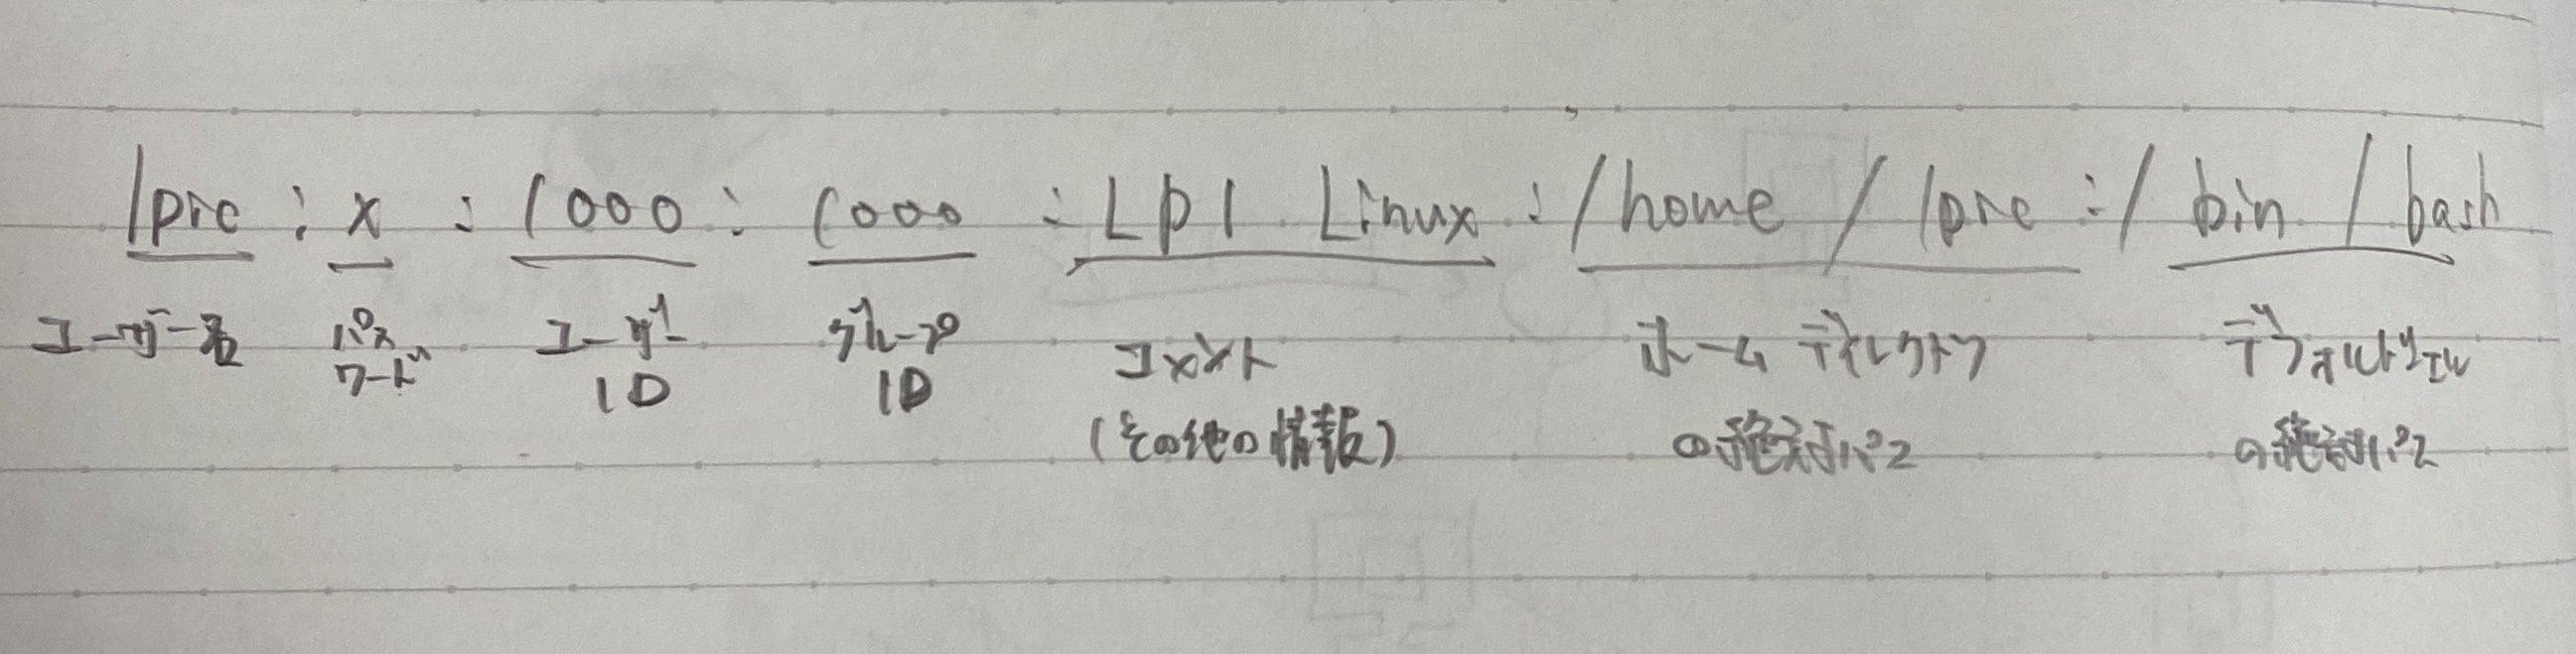 lpic : x : 1000 : 1000 : LPI Linux : /home / lpic : / bin / bash
ユーザー名 パスワード ユーザーID グループID コメント ホームディレクトリ デフォルトシェル
(その他の情報) の絶対パス の絶対パス